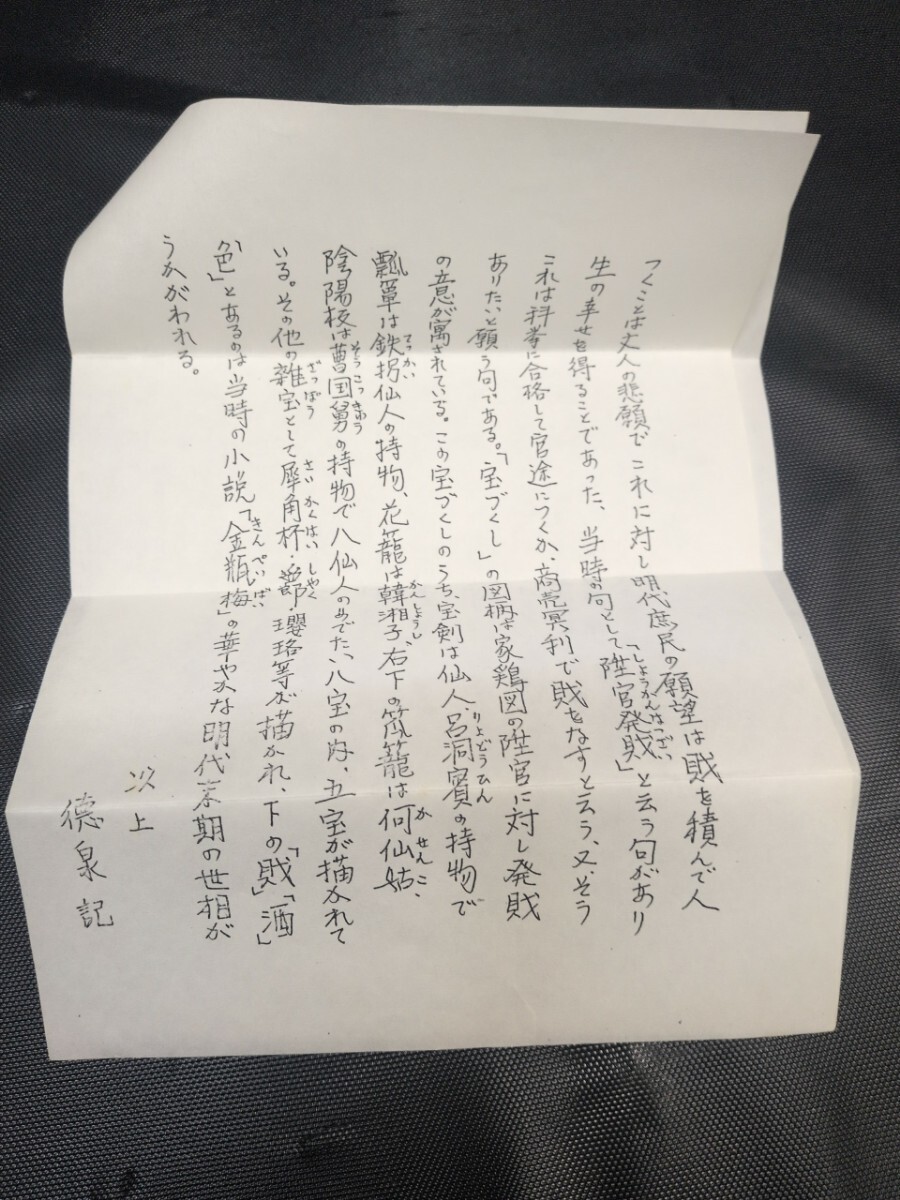 つくことは丈人の悲願でこれに対し明代庶民の願望は賎を積んで人
生の幸せを得ることであった、当時の句として「陞官発賎」と云う句があり
これは抖挙に合格して官途につくか、商売冥利で賎をなすと云う、又、そう
ありたいと願う句である。「宝づくし」の図柄は家鶏図の陞官に対し発賎
の意が寓されている。この宝づくしのうち、宝剣は仙人呂洞賓の持物で
瓢箪は鉄拐仙人の持物、花籠は韓湘子、右下の笊籠は何仙姑、
陰陽板は曹国舅の持物で八仙人のめでたい八宝の内、五宝が描かれて
いる。その他の雑宝として犀角杯・爵・瓔珞等が描かれ、下の「賎」「酒」
「色」とあるのは当時の小説「金瓶梅」の華やかな明代末期の世相が
うかがわれる。
以上
徳泉記